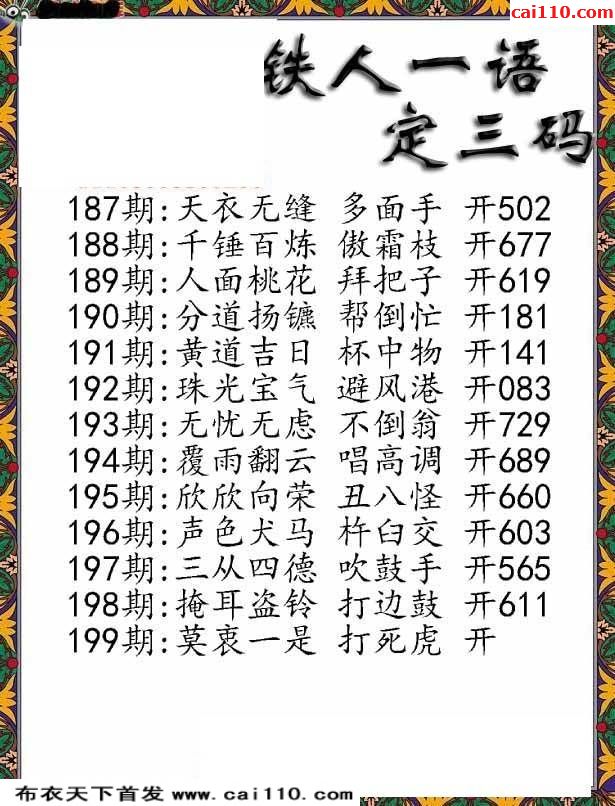 cai110.com
铁人一语
定三码
187期:天衣无缝 多面手 开502
188期:千锤百炼 傲霜枝 开677
189期:人面桃花 拜把子 开619
190期:分道扬镳 帮倒忙 开181
191期:黄道吉日 杯中物 开141
192期:珠光宝气 避风港 开083
193期:无忧无虑 不倒翁 开729
194期:覆雨翻云 唱高调 开689
195期:欣欣向荣 丑八怪 开660
196期:声色犬马 杵臼交 开603
197期:三从四德 吹鼓手 开565
198期:掩耳盗铃 打边鼓 开611
199期:莫衷一是 打死虎 开
布衣天下首发 www.cai110.com